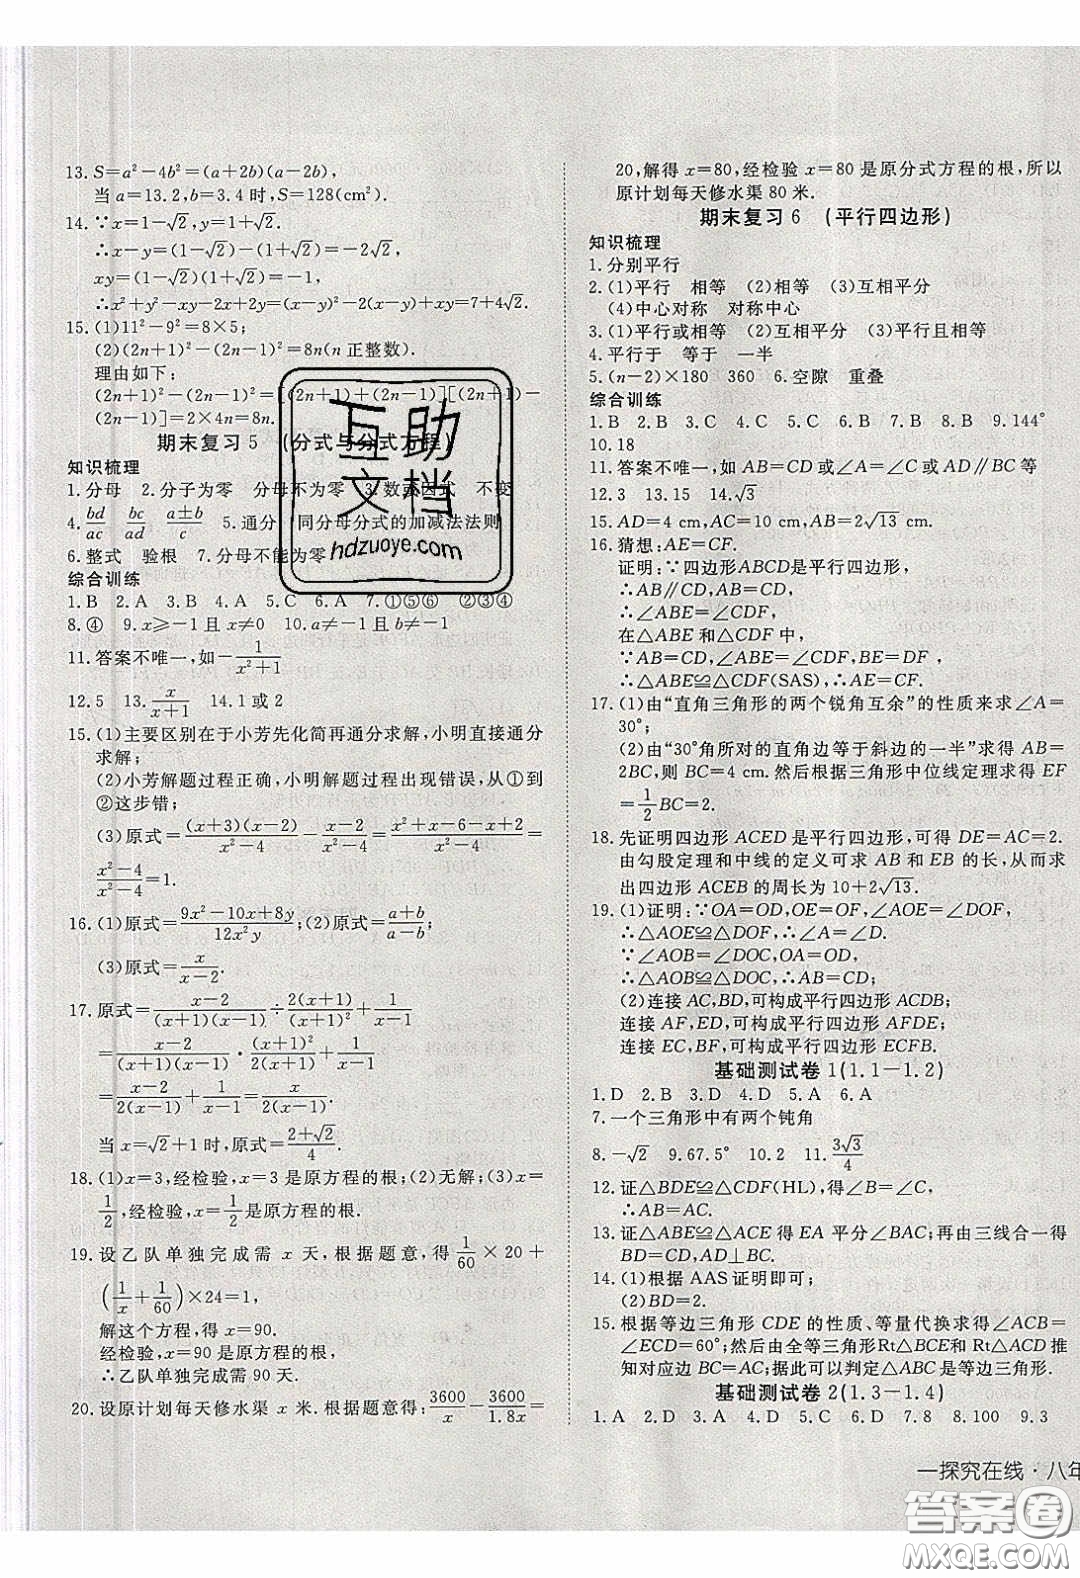 13. S=a²-4b²=(a+2b)(a-2b),
当 a=13.2,b=3.4 时,S=128(cm²).
14. ∵x=1-√2,y=1+√2,
∴x-y=(1-√2)-(1+√2)=-2√2,
xy=(1-√2)(1+√2)=-1,
∴x²+y²-xy-2x+2y=(x-y)²-2(x-y)+xy=7+4√2.
15. (1)11²-9²=8×5;
(2)(2n+1)²-(2n-1)²=8n(n 正整数).
理由如下:
(2n+1)²-(2n-1)²=[(2n+1)+(2n-1)][(2n+1)-
(2n-1)]=2×4n=8n.
期末复习 5 (分式与分式方程)
知识梳理
1. 分母 2. 分子为零 分母不为零 3. 数或因式 不变
4. bd/ac bc/ad (a±b)/c 5. 通分 同分母分式的加减法法则
6. 整式 验根 7. 分母不能为零
综合训练
1. B 2. A 3. B 4. A 5. C 6. A 7. ①⑤⑥ ②③④
8. ④ 9. x≥-1 且 x≠0 10. a≠-1 且 b≠-1
11. 答案不唯一,如-1/(x²+1)
12. 5 13. x/(x+1) 14. 1 或 2
15. (1)主要区别在于小芳先化简再通分求解,小明直接通分
求解;
(2)小芳解题过程正确,小明解题过程出现错误,从①到
②这步错;
(3)原式=(x+3)(x-2)/(x²-4)-(x-2)/(x²-4)=(x²+x-6-x+2)/(x²-4)=
(x²-4)/(x²-4)=1.
16. (1)原式=(9x²-10x+8y)/(12x²y);(2)原式=(a+b)/(a-b);
(3)原式=x/(x-2).
17. 原式=(x-2)/((x+1)(x-1))÷2(x+1)/(x+1)²+1/(x-1)
=(x-2)/((x+1)(x-1))·(x+1)²/(2(x+1))+1/(x-1)
=(x-2)/(2(x-1))+1/(x-1)=x/(2(x-1)).
当 x=√2+1 时,原式=(2+√2)/4.
18. (1)x=3,经检验,x=3是原方程的根;(2)无解;(3)x=
1/2,经检验,x=1/2是原方程的根.
19. 设乙队单独完成需 x 天,根据题意,得 1/60×20+
(1/x+1/60)×24=1,
解这个方程,得 x=90.
经检验,x=90是原方程的根,
∴乙队单独完成需 90 天.
20. 设原计划每天修水渠 x 米.根据题意得:3600/x-3600/1.8x=
20,解得 x=80,经检验 x=80 是原分式方程的根,所以
原计划每天修水渠 80 米.
期末复习 6 (平行四边形)
知识梳理
1. 分别平行
2. (1)平行 相等 (2)相等 (3)互相平分
(4)中心对称 对称中心
3. (1)平行或相等 (2)互相平分 (3)平行且相等
4. 平行于 等于 一半
5. (n-2)×180 360 6. 空隙 重叠
综合训练
1. B 2. B 3. C 4. C 5. C 6. B 7. B 8. B 9. 144°
10. 18
11. 答案不唯一,如 AB=CD 或∠A=∠C或AD∥BC 等
12. 3 13. 15 14. √3
15. AD=4 cm,AC=10 cm,AB=2√13 cm.
16. 猜想:AE=CF.
证明:∵四边形ABCD是平行四边形,
∴AB∥CD,AB=CD,
∴∠ABE=∠CDF,
在△ABE 和△CDF 中,
∵AB=CD,∠ABE=∠CDF,BE=DF,
∴△ABE≌△CDF(SAS),∴AE=CF.
17. (1)由“直角三角形的两个锐角互余”的性质来求∠A=
30°;
(2)由“30°角所对的直角边等于斜边的一半”求得 AB=
2BC,则BC=4 cm. 然后根据三角形中位线定理求得 EF
=1/2BC=2.
18. 先证明四边形 ACED 是平行四边形,可得 DE=AC=2.
由勾股定理和中线的定义可求 AB 和 EB 的长,从而求
出四边形 ACEB 的周长为 10+2√13.
19. (1)证明:∵OA=OD,OE=OF,∠AOE=∠DOF,
∴△AOE≌△DOF,∴∠A=∠D.
∵∠AOB=∠DOC,OA=OD,
∴△AOB≌△DOC,∴AB=CD;
(2)连接 AC,BD,可构成平行四边形 ACDB;
连接 AF,ED,可构成平行四边形 AFDE;
连接 EC,BF,可构成平行四边形 ECFB.
基础测试卷 1(1.1-1.2)
1. D 2. B 3. D 4. D 5. A 6. A
7. 一个三角形中有两个钝角
8. -√2 9. 67.5° 10. 2 11. 3√3/4
12. 证△BDE≌△CDF(HL),∴∠B=∠C,
∴AB=AC.
13. 证△ABE≌△ACE 得 EA 平分∠BAC;再由三线合一得
BD=CD,AD⊥BC.
14. (1)根据 AAS 证明即可;
(2)BD=2.
15. 根据等边三角形 CDE 的性质、等量代换求得∠ACB=
∠ECD=60°;然后由全等三角形Rt△BCE≌Rt△ACD推
知对应边 BC=AC;据此可以判定△ABC是等边三角形.
基础测试卷 2(1.3-1.4)
1. A 2. D 3. A 4. D 5. C 6. D 7. 8 8. 100 9. 3
一探究在线·八年
互助
文档
hdzuoye.com
答案圈
MXQE.COM